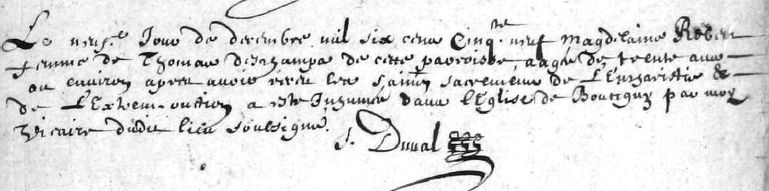 Le neufe Jour de decembre mil six cens Cinqte neuf Magdelaine Robert
femme de Thomas deschamps de cette parroisse, aagée de trente ans
ou environ apres avoir receu les saints sacremens de L'Eucharistie &
de L'Extreme-onction a este Inhumée dans l'Eglise de Boutigny par moy
Vicaire dudit lieu soussigné.
J. Duval